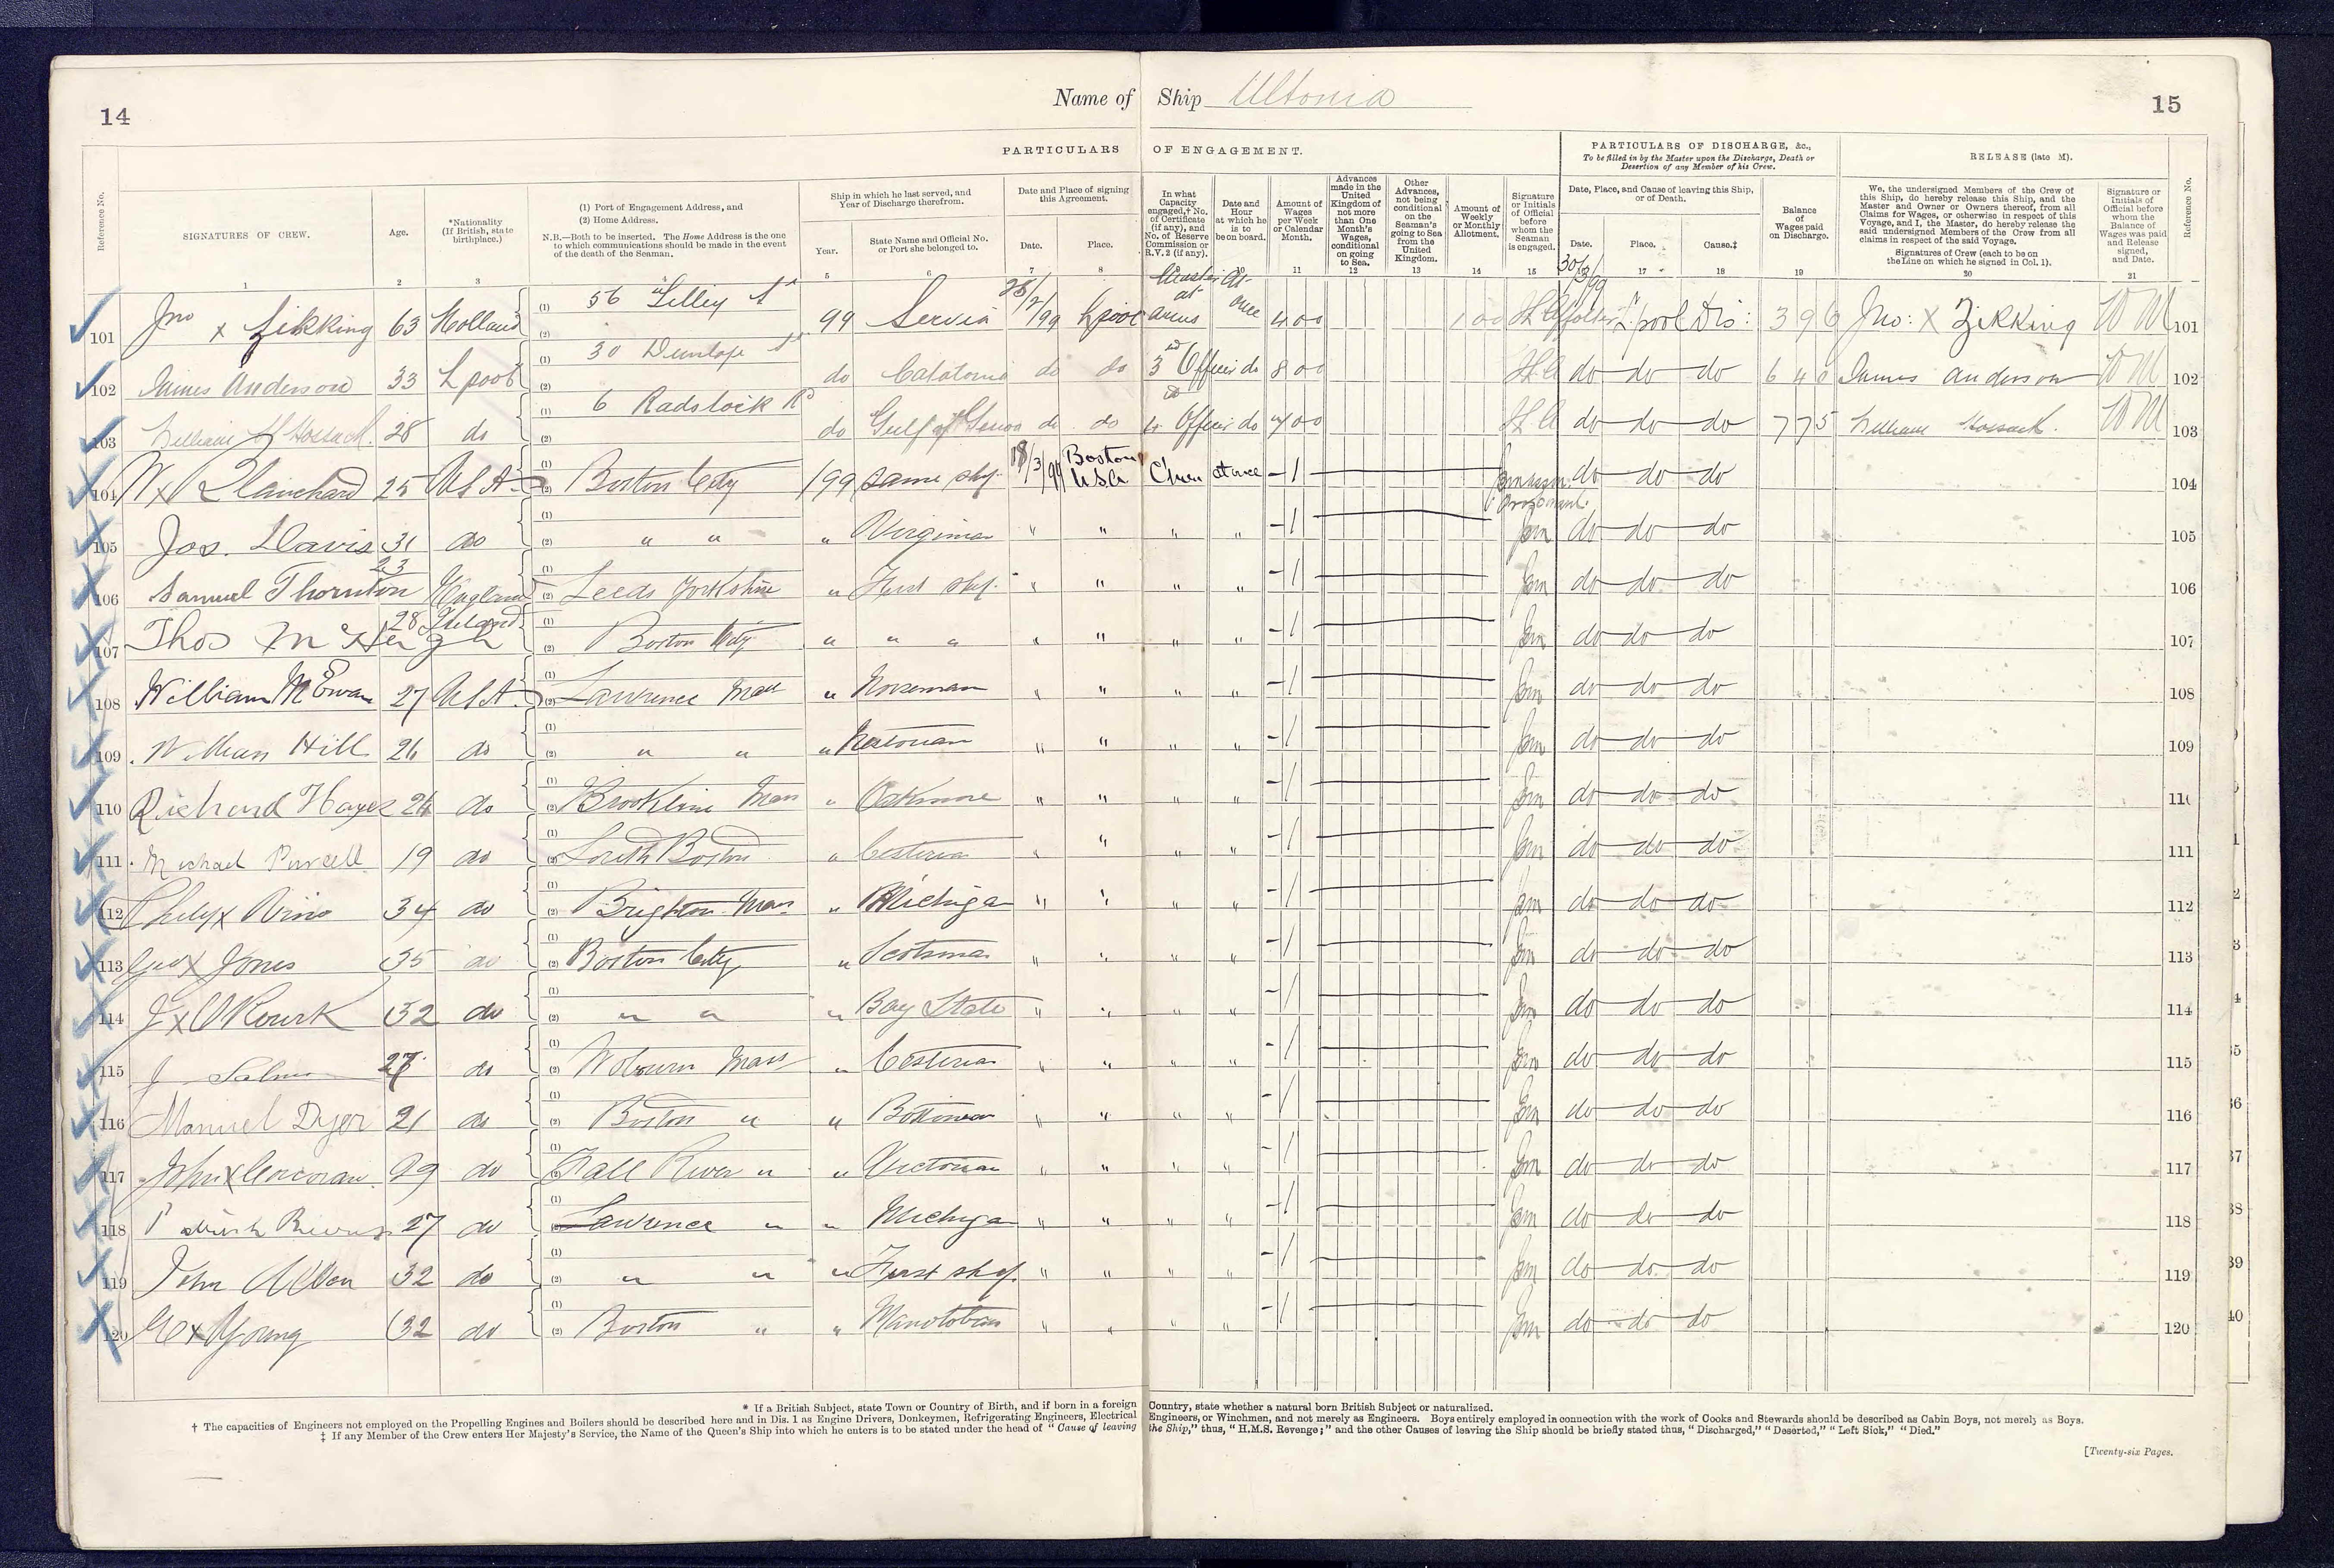 14
Name of Ship Ultonia
15
PARTICULARS OF ENGAGEMENT.
PARTICULARS OF DISCHARGE, &c.,
To be filled in by the Master upon the Discharge, Death or Desertion of any Member of his Crew.
RELEASE (late M).
Reference No.
SIGNATURES OF CREW.
Age.
*Nationality (If British, state birthplace.)
(1) Port of Engagement Address, and
(2) Home Address.
N.B.—Both to be inserted. The Home Address is the one to which communications should be made in the event of the death of the Seaman.
Ship in which he last served, and Year of Discharge therefrom.
Year.
State Name and Official No. or Port she belonged to.
Date and Place of signing this Agreement.
Date.
Place.
In what Capacity engaged,† No. of Certificate (if any), and No. of Reserve Commission or R.V. 2 (if any).
Date and Hour at which he is to be on board.
Amount of Wages per Week or Calendar Month.
Advances made in the United Kingdom of not more than One Month's Wages, conditional on going to Sea.
Other Advances, not being conditional on the Seaman's going to Sea from the United Kingdom.
Amount of Weekly or Monthly Allotment.
Signature or Initials of Official before whom the Seaman is engaged.
Date, Place, and Cause of leaving this Ship, or of Death.
Date.
Place.
Cause.‡
Balance of Wages paid on Discharge.
We, the undersigned Members of the Crew of this Ship, do hereby release this Ship, and the Master and Owner or Owners thereof, from all Claims for Wages, or otherwise in respect of this Voyage, and I, the Master, do hereby release the said undersigned Members of the Crew from all claims in respect of the said Voyage.
Signatures of Crew (each to be on the Line on which he signed in Col. 1).
Signature or Initials of Official before whom the Balance of Wages was paid and Release signed, and Date.
Reference No.
1 2 3 4 5 6 7 8 10 11 12 13 14 15 17 18 19 20 21
101 Jno x Zikking 63 Holland (1) 56 Lilley St (2) 99 Servia 28/2/99 Lpool Master at arms At once 4 0 0 1 0 0 30/3/99 L'pool Dis: 3 9 6 Jno: X Zikking WM 101
102 James Anderson 33 Lpool (1) 30 Dunlop St (2) do Catalonia do do 3rd Officer do 8 0 0 do do do 6 4 0 James Anderson WM 102
103 William Hossack 28 do (1) 6 Radstock Rd (2) do Gulf of Genoa do do 4 Officer do 7 0 0 do do do 7 7 5 William Hossack. WM 103
104 W x Blanchard 25 USA (1) (2) Boston City 99 same ship 18/3/99 Boston USA at once -1 do do do 104
105 Jos. Davis 31 do (1) (2) " " " Virginian " " " " -1 do do do 105
106 Samuel Thornton 23 England (1) (2) Leeds Yorkshire " First ship " " " " -1 do do do 106
107 Thos 28 Ireland (1) (2) Boston City " " " " " " " -1 do do do 107
108 William McEwan 27 USA (1) (2) Lawrence Mass " Norseman " " " " -1 do do do 108
109 William Hill 26 do (1) (2) " " " " " " " -1 do do do 109
110 Richard Hayes 24 do (1) (2) Brookline Mass " Oakmore " " " " -1 do do do 110
111 Michael Purcell 19 do (1) (2) South Boston " Cestrian " " " " -1 do do do 111
112 x 34 do (1) (2) Brighton Mass " Michigan " " " " -1 do do do 112
113 Geo x Jones 35 do (1) (2) Boston City " Scotsman " " " " -1 do do do 113
114 J x O'Rourk 32 do (1) (2) " " " Bay State " " " " -1 do do do 114
115 J 27 do (1) (2) Woburn Mass " Cestrian " " " " -1 do do do 115
116 Manuel Dyer 21 do (1) (2) Boston " " Bostonian " " " " -1 do do do 116
117 John x Corcoran 29 do (1) Fall River " " Victorian " " " " -1 do do do 117
118 27 do (1) Lawrence " " Michigan " " " " -1 do do do 118
119 John Allen 32 do (1) (2) " " " First ship " " " " -1 do do do 119
120 x Young 32 do (1) (2) Boston " " Manitoban " " " " -1 do do do 120
* If a British Subject, state Town or Country of Birth, and if born in a foreign Country, state whether a natural born British Subject or naturalized.
† The capacities of Engineers not employed on the Propelling Engines and Boilers should be described here and in Dis. 1 as Engine Drivers, Donkeymen, Refrigerating Engineers, Electrical Engineers, or Winchmen, and not merely as Engineers. Boys entirely employed in connection with the work of Cooks and Stewards should be described as Cabin Boys, not merely as Boys.
‡ If any Member of the Crew enters Her Majesty's Service, the Name of the Queen's Ship into which he enters is to be stated under the head of "Cause of leaving the Ship," thus, "H.M.S. Revenge;" and the other Causes of leaving the Ship should be briefly stated thus, "Discharged," "Deserted," "Left Sick," "Died."
[Twenty-six Pages.